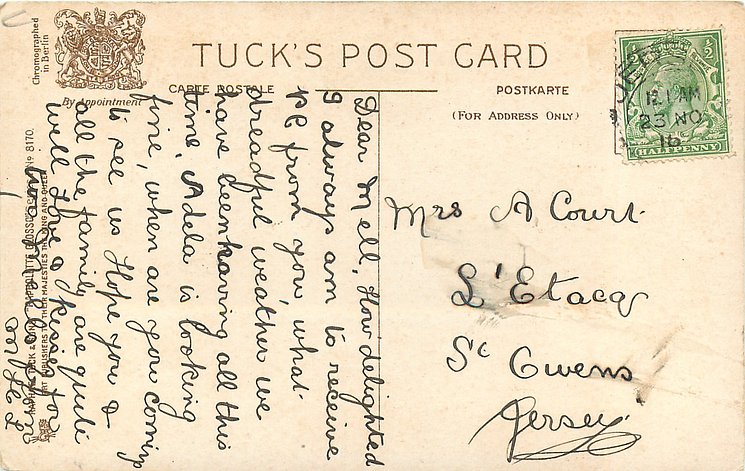 Chromographed
in Berlin
By Appointment
TUCK'S POST CARD
CARTE POSTALE
POSTKARTE
(FOR ADDRESS ONLY)
HALFPENNY
12.1 AM
23 NO
16
Dear Mell, How delighted
I always am to receive
PC from you, what
dreadful weather we
have been having all this
time, Adela is looking
fine, when are you coming
to see us Hope you &
all the family are quite
well Love & kisses for
Mrs A Court
L'Etacq
St Owens
Jersey
RAPHAEL TUCK & SONS' "RAPHOLITE GLOSSO" SERIES Nº 8170.
ART PUBLISHERS TO THEIR MAJESTIES THE KING AND QUEEN